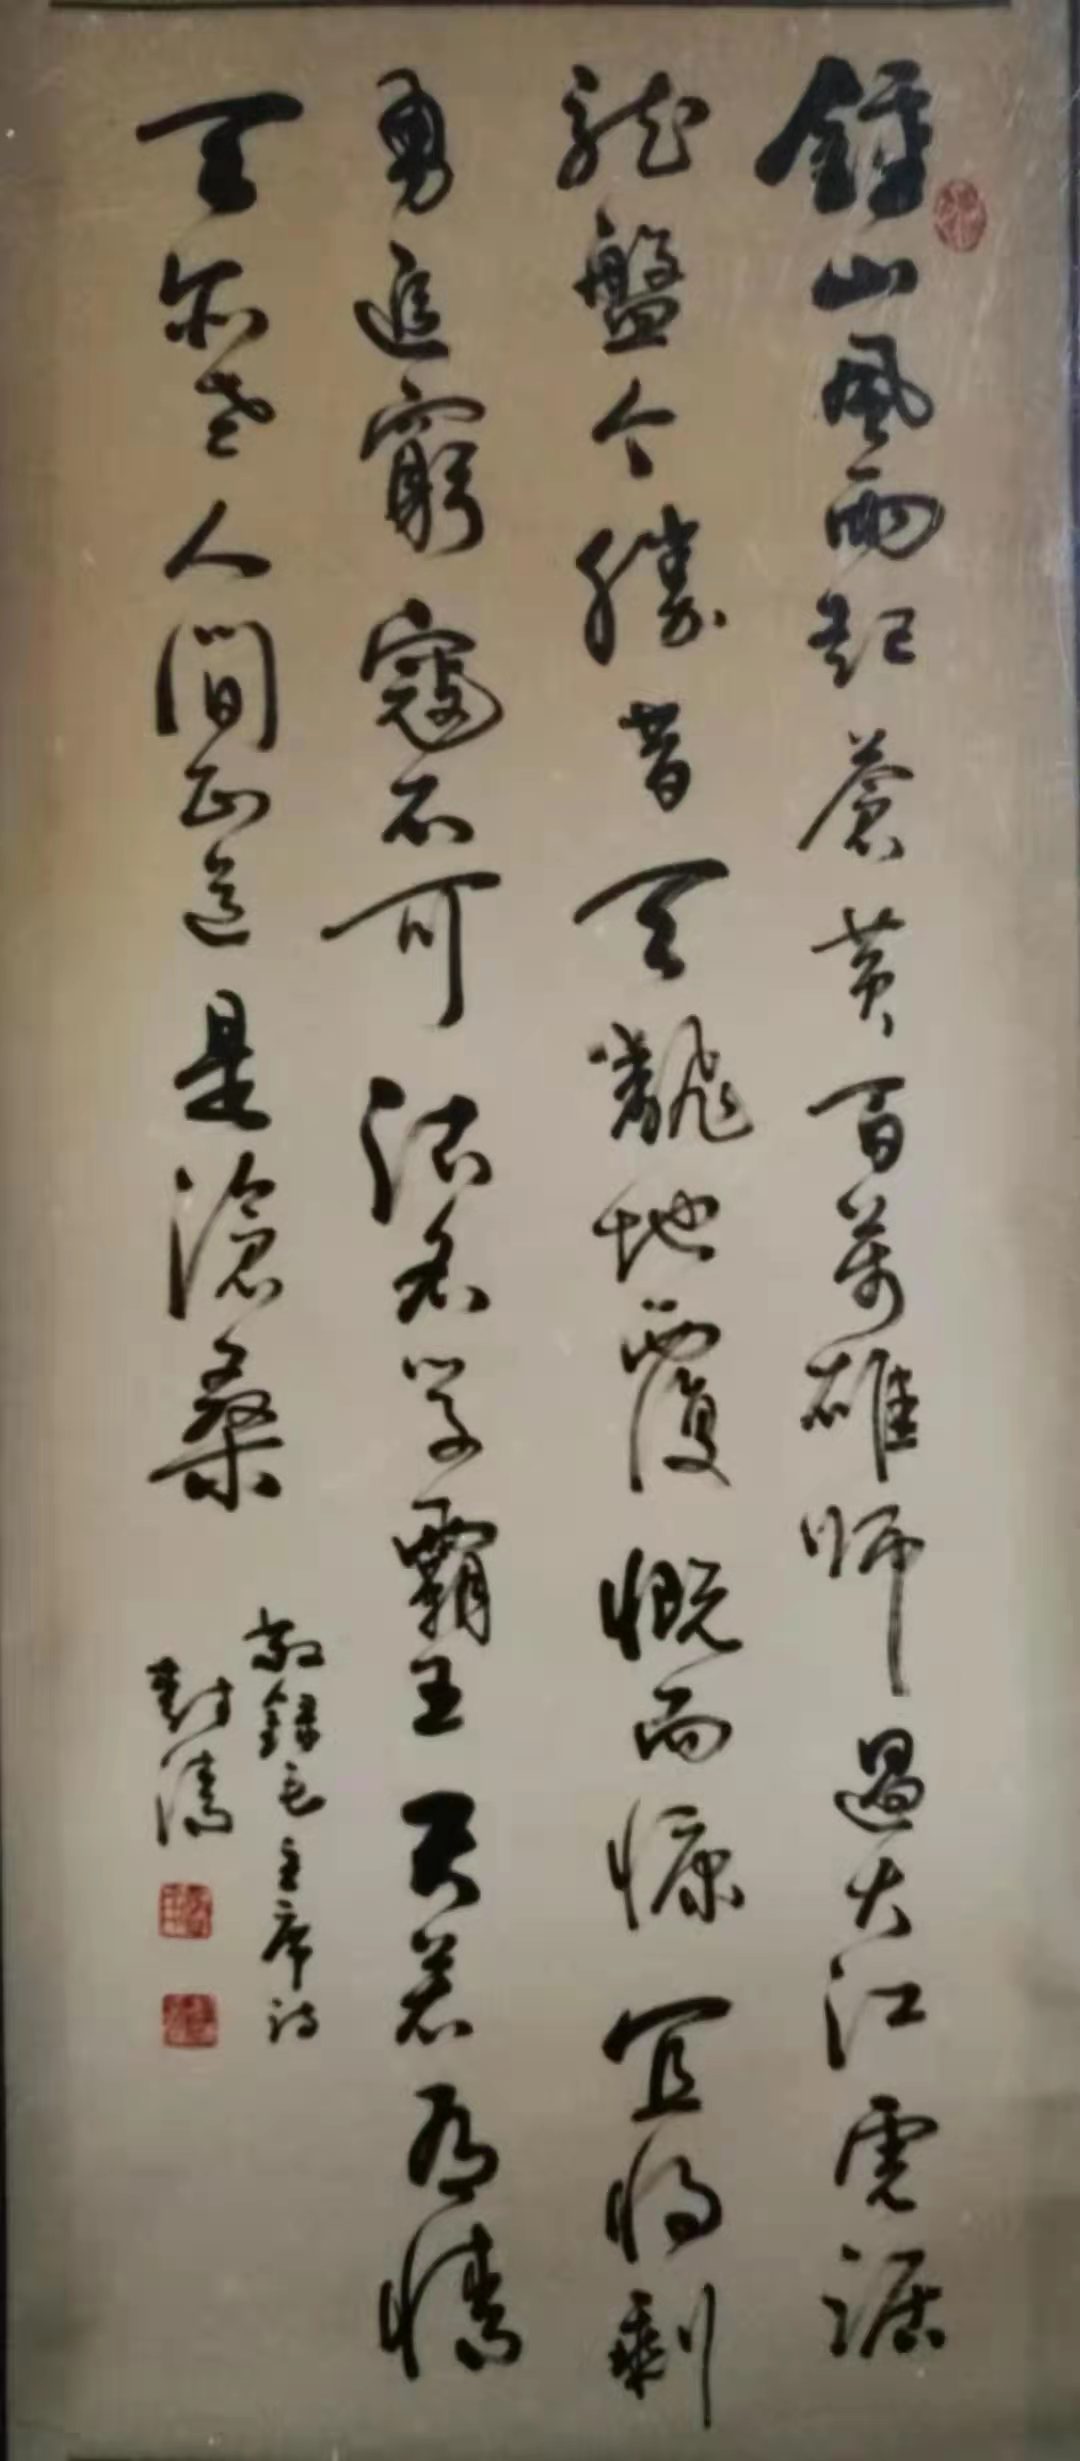 鍾山風雨起蒼黃百萬雄師過大江虎踞
龍盤今勝昔天飜地覆慨而慷宜將剩
勇追窮寇不可沽名學霸王天若有情
天亦老人間正道是滄桑
敬錄毛主席詩